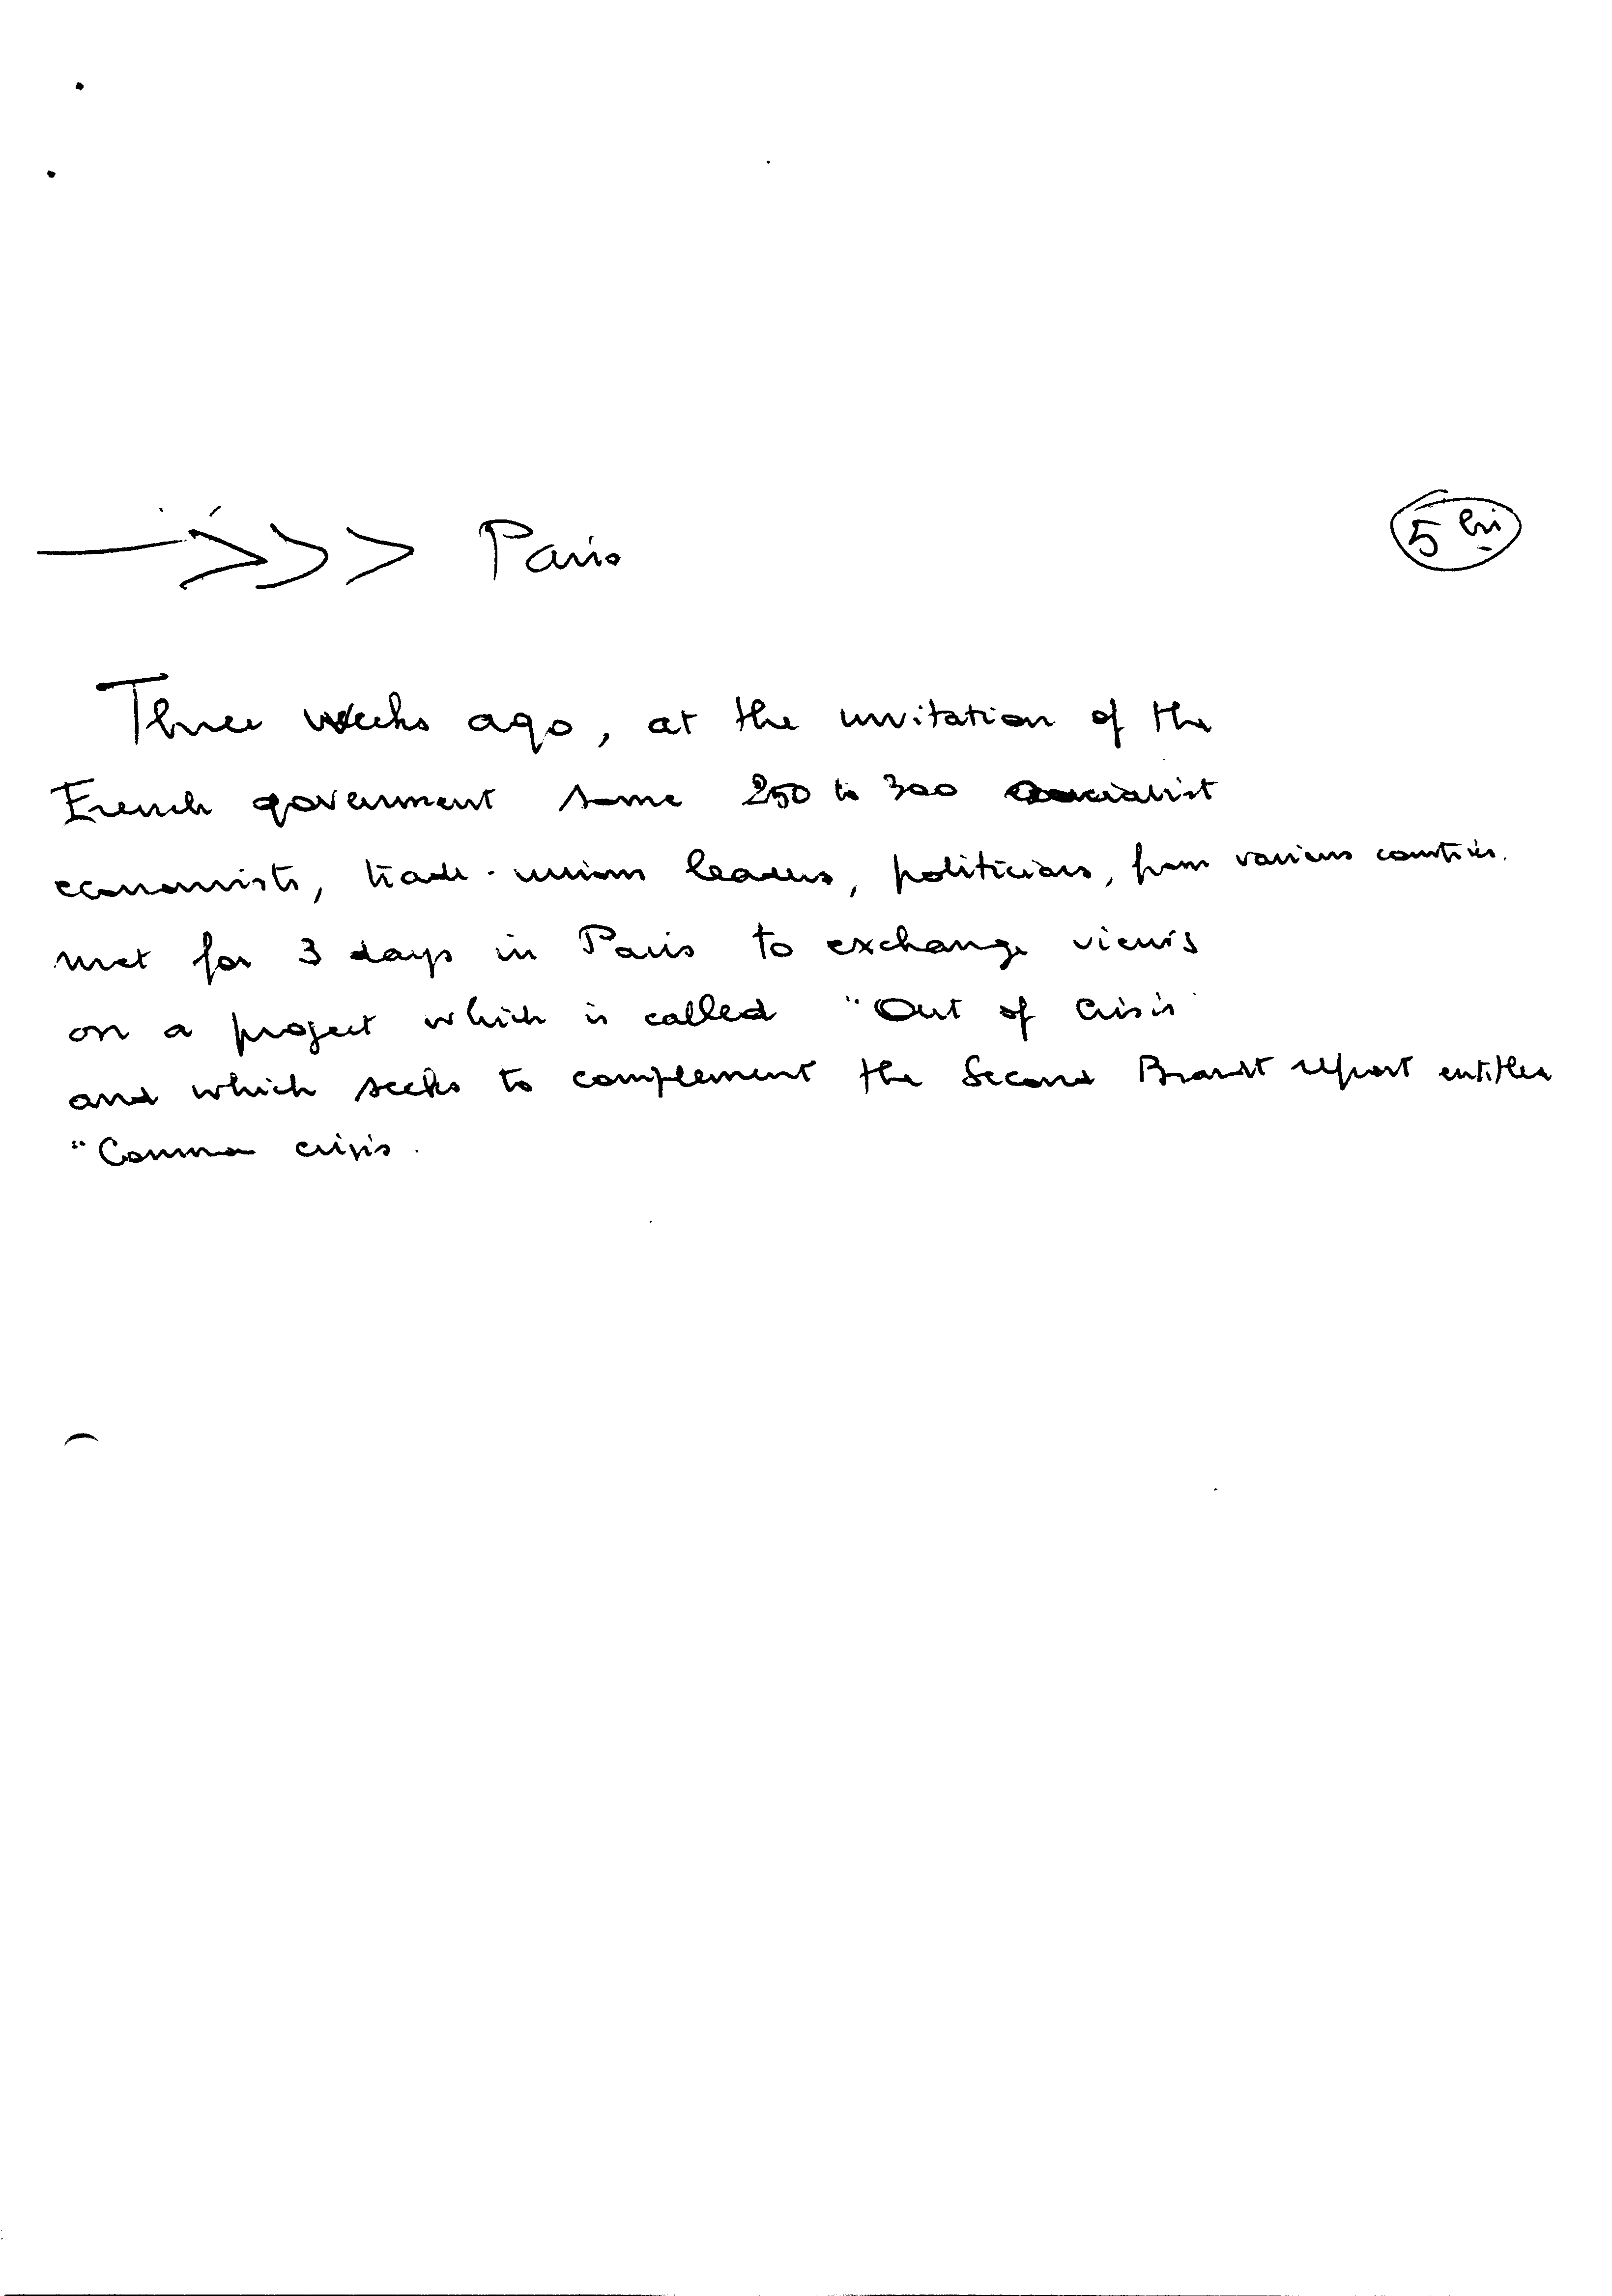 →>> Paris
5 bis
Three weeks ago, at the invitation of the
French government some 250 to 300 socialist
economists, trade-unions leaders, politicians, from various countries.
met for 3 days in Paris to exchange views
on a project which is called "Out of Crisis"
and which seeks to complement the Second Brandt report entitled
"Common crisis.